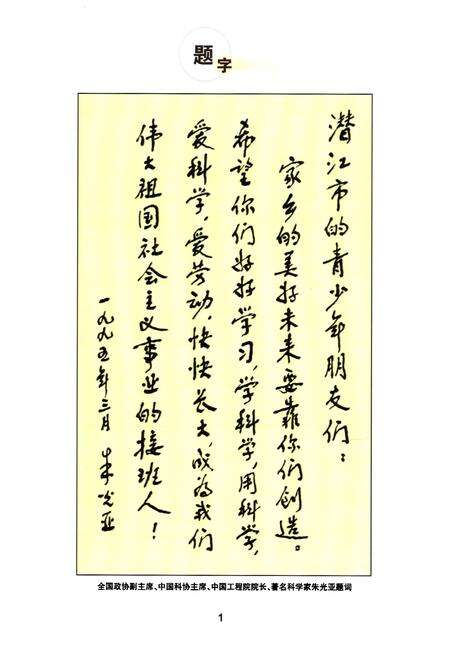 题字
潜江市的青少年朋友们：
家乡的美好未来要靠你们创造。
希望你们好好学习，学科学，用科学，
爱科学，爱劳动，快快长大，成为我们
伟大祖国社会主义事业的接班人！
一九九五年三月 朱光亚
全国政协副主席、中国科协主席、中国工程院院长、著名科学家朱光亚题词
1